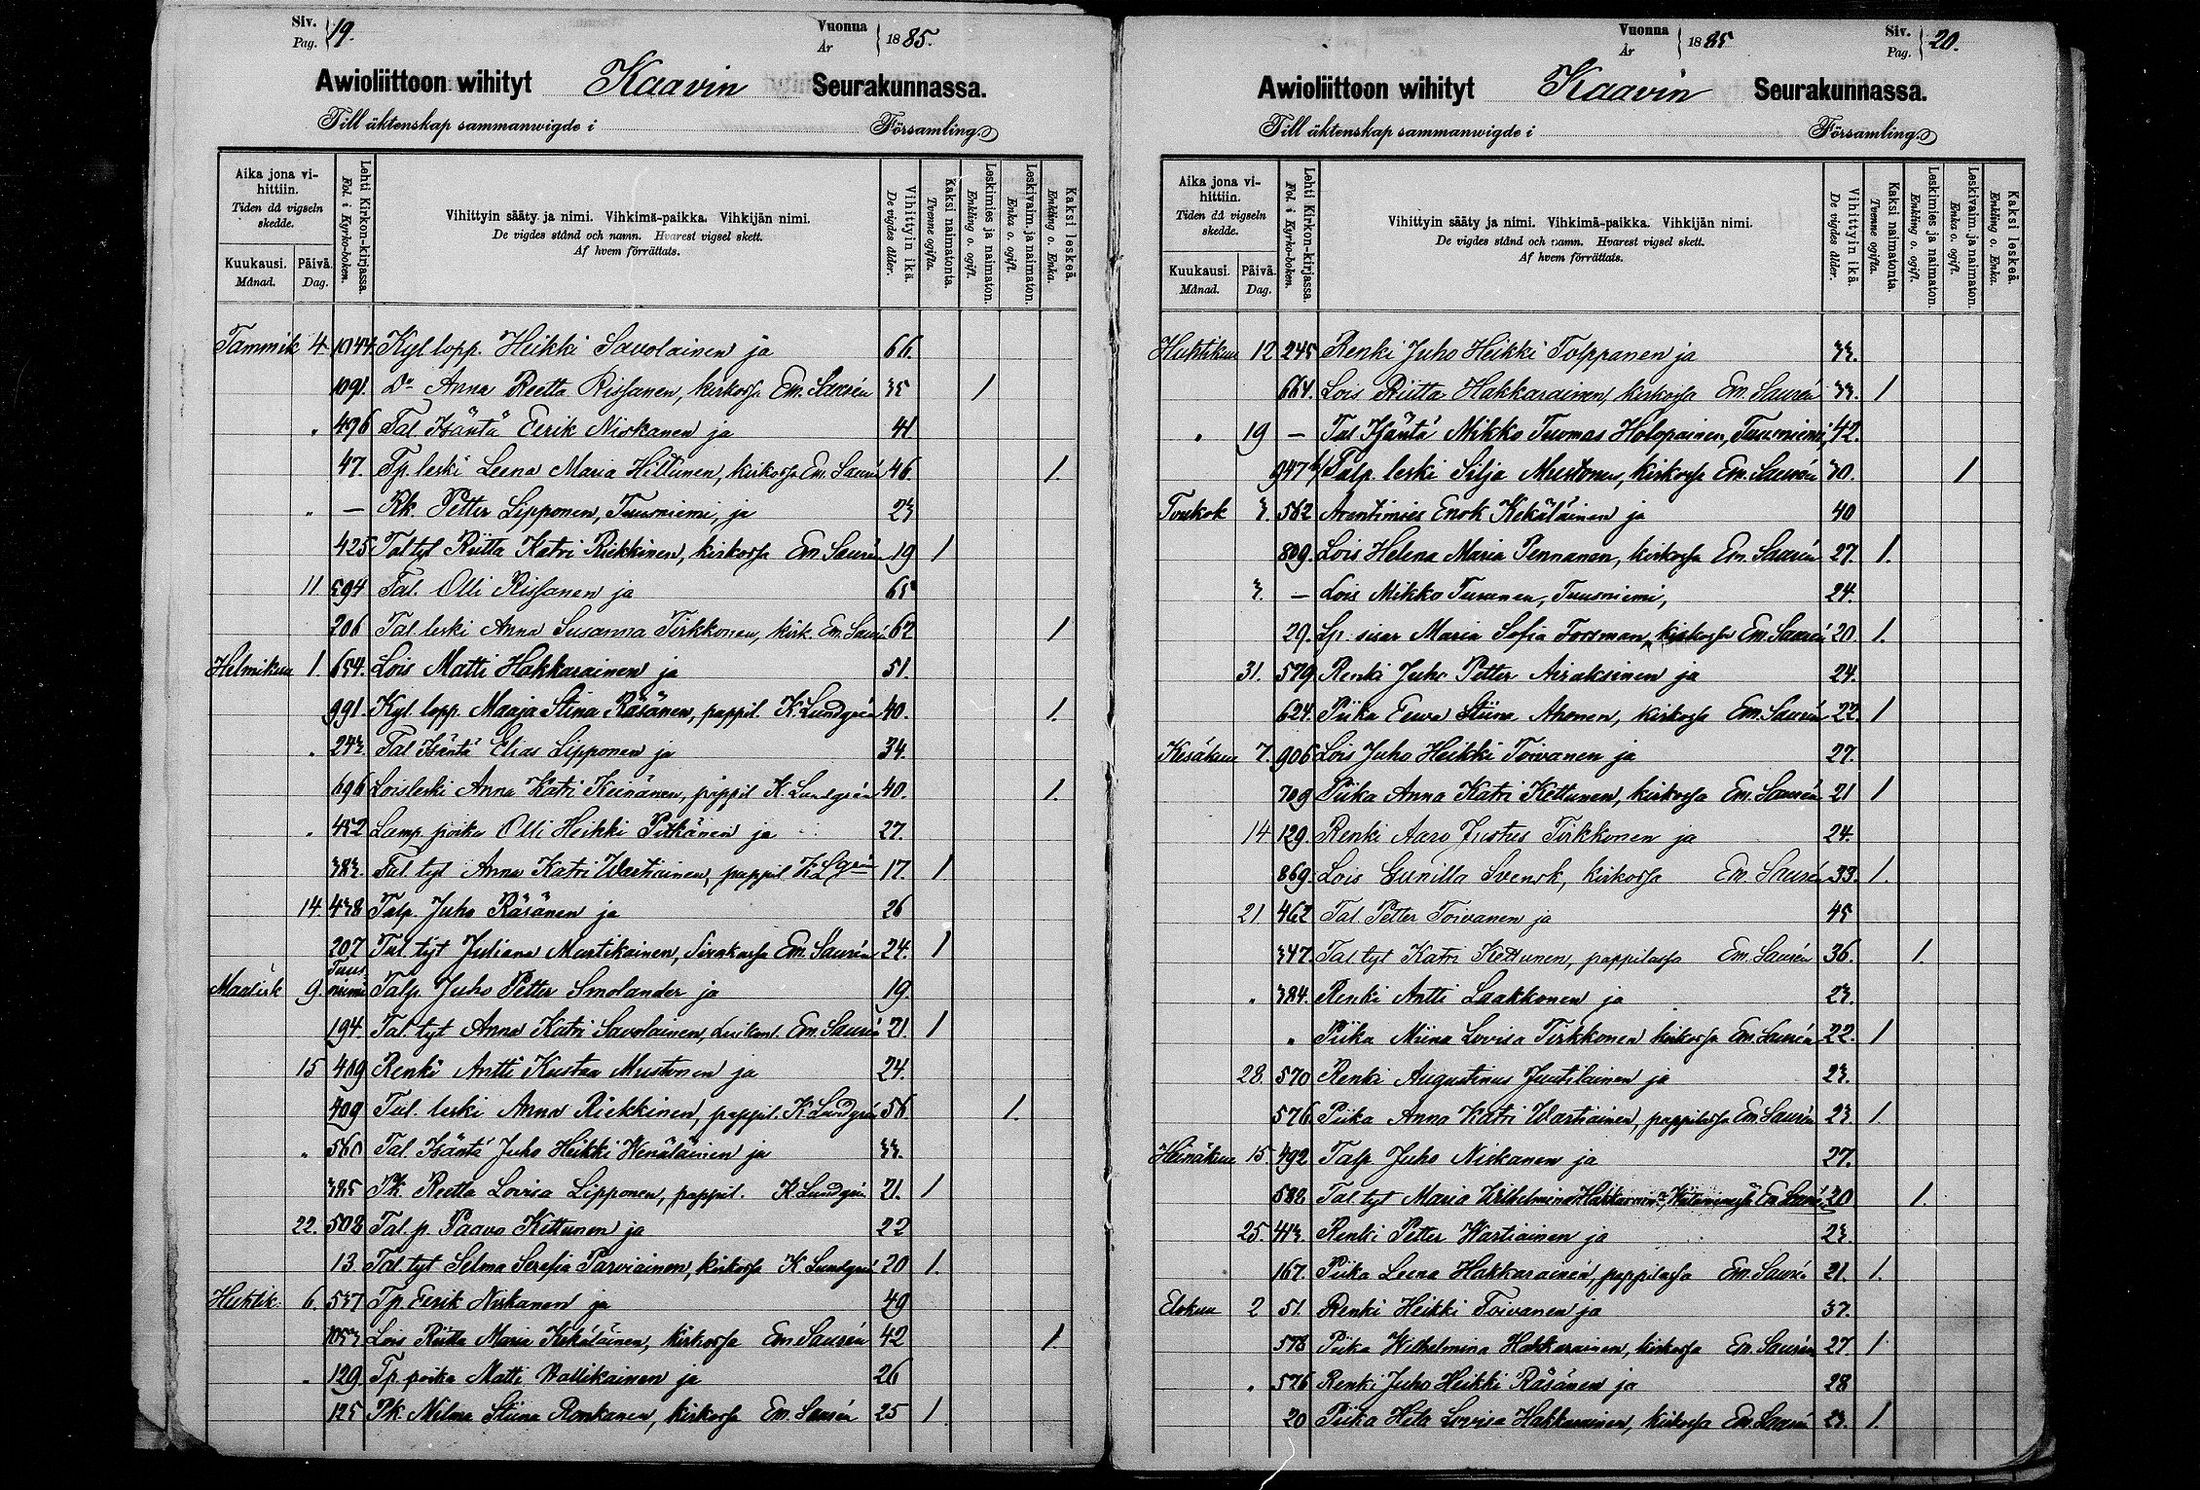 Siv. Pag. 19.
Vuonna År 1885.
Awioliittoon wihityt Kaavin Seurakunnassa.
Till äktenskap sammanwigde i Församling.
Aika jona vihittiin. Tiden då vigseln skedde.
Kuukausi. Månad.
Päivä. Dag.
Lehti Kirkon-kirjassa. Fol. i Kyrko-boken.
Vihittyin sääty ja nimi. Vihkimä-paikka. Vihkijän nimi.
De vigdes stånd och namn. Hvarest vigsel skett.
Af hvem förrättats.
Vihittyin ikä. De vigdes ålder.
Kaksi naimatonta. Tvenne ogifta.
Leskimies ja naimaton. Enkling o. ogift.
Leskivaim. ja naimaton. Enka o. ogift.
Kaksi leskeä. Enkling o. Enka.
Tammik 4 1044. Kyl lopp. Heikki Savolainen ja 66.
1091. Do Anna Reetta Rissanen, kirkossa Em. Saurén 35 1
" 496 Tal. Isäntä Eerik Niskanen ja 41
47. Tp. leski Leena Maria Hiltunen, kirkossa Em. Saurén 46. 1.
" — Rk. Petter Lipponen, Tuusniemi, ja 23
425 Tal tyt Riitta Katri Riekkinen, kirkossa Em. Saurén 19 1
11 594 Tal. Olli Rissanen ja 65
206 Tal. leski Anna Susanna Tirkkonen, kirk. Em. Saurén 62 1
Helmikuu 1. 654. Lois Matti Hakkarainen ja 51.
991. Kyl. lopp. Maaja Stina Räsänen, pappil. K. Lundgrén 40. 1.
" 243. Tal Isäntä Elias Lipponen ja 34.
696 Loisleski Anna Katri Keinänen, pappil K. Lundgrén 40. 1.
" 452 Lamp. poika Olli Heikki Pitkänen ja 27.
383. Tal. tyt Anna Katri Wartiainen, pappil K. Lgrén 17. 1.
14. 438 Talp. Juho Räsänen ja 26
207 Tal tyt Juliana Martikainen, Em. Saurén 24. 1
Maalisk 9. Tuusniemi Talp. Juho Petter Smolander ja 19.
194. Tal. tyt Anna Katri Savolainen, Em. Saurén 21. 1
15 409 Renki Antti Kustaa Mustonen ja 24.
409 Tal. leski Anna Riekkinen, pappil. K. Lundgrén 56 1.
" 560 Tal. Isäntä Juho Heikki Wenäläinen ja 33.
385 Pk. Reetta Lovisa Lipponen, pappil. K Lundgrén 21. 1
22. 508 Tal. p. Paavo Kettunen ja 22
13. Tal. tyt Selma Serafia Parviainen, kirkossa K. Lundgrén 20 1.
Huhtik. 6. 537 Tp. Eerik Niskanen ja 49
1053 Lois Riitta Maria Kekäläinen, kirkossa Em. Saurén 42 1.
" 129. Tp. poika Matti Wallikainen ja 26
125 Pk. Milma Stiina Ronkanen, kirkossa Em. Saurén 25 1.
Vuonna År 1885
Siv. Pag. 20.
Awioliittoon wihityt Kaavin Seurakunnassa.
Till äktenskap sammanwigde i Församling.
Aika jona vihittiin. Tiden då vigseln skedde.
Kuukausi. Månad.
Päivä. Dag.
Lehti Kirkon-kirjassa. Fol. i Kyrko-boken.
Vihittyin sääty ja nimi. Vihkimä-paikka. Vihkijän nimi.
De vigdes stånd och namn. Hvarest vigsel skett.
Af hvem förrättats.
Vihittyin ikä. De vigdes ålder.
Kaksi naimatonta. Tvenne ogifta.
Leskimies ja naimaton. Enkling o. ogift.
Leskivaim. ja naimaton. Enka o. ogift.
Kaksi leskeä. Enkling o. Enka.
Huhtikuu 12 245 Renki Juho Heikki Tolppanen ja 33.
664. Lois Riitta Hakkarainen, kirkossa Em. Saurén 33. 1
" 19 — Tal. Isäntä Mikko Tuomas Holopainen, Tuusniemi, 42.
947 Talp. leski Silja Mustonen, kirkossa Em. Saurén 30. 1
Toukok 3. 562 Arentimies Enok Kekäläinen ja 40
809. Lois Helena Maria Pennanen, kirkossa Em. Saurén 27. 1.
3. — Lois Mikko Turunen, Tuusniemi, 24.
29. Lp. sisar Maria Sofia Forsman, kirkossa Em. Saurén 20 1.
31. 579 Renki Juho Petter Airaksinen ja 24.
624. Piika Eewa Stiina Ahonen, kirkossa Em. Saurén 22 1
Kesäkuu 7. 906 Lois Juho Heikki Toivanen ja 27.
709 Piika Anna Katri Kettunen, kirkossa Em. Saurén 21 1
14 129. Renki Aaro Justus Tirkkonen ja 24.
869. Lois Gunilla Svensk, kirkossa Em. Saurén 33. 1.
21. 462 Tal. Petter Toivanen ja 45
347. Tal tyt Katri Kettunen, pappilassa Em. Saurén 36. 1.
" 384. Renki Antti Laakkonen ja 23.
" Piika Miina Lovisa Tirkkonen kirkossa Em. Saurén 22. 1
28. 570 Renki Augustinus Juutilainen ja 23.
576 Piika Anna Katri Wartiainen, pappilassa Em. Saurén 23. 1.
Heinäkuu 15 492 Talp. Juho Niskanen ja 27.
582 Tal. tyt Maria Wilhelmina Hakkarainen, Em. Saurén 20 1.
25. 413. Renki Petter Wartiainen ja 23.
167. Piika Leena Hakkarainen, pappilassa Em. Saurén 21. 1.
Elokuu 2 51. Renki Heikki Toivanen ja 37.
578 Piika Wilhelmina Hakkarainen, kirkossa Em. Saurén 27. 1
" 576 Renki Juho Heikki Räsänen ja 28
20 Piika Heta Lovisa Hakkarainen, kirkossa Em. Saurén 23. 1.